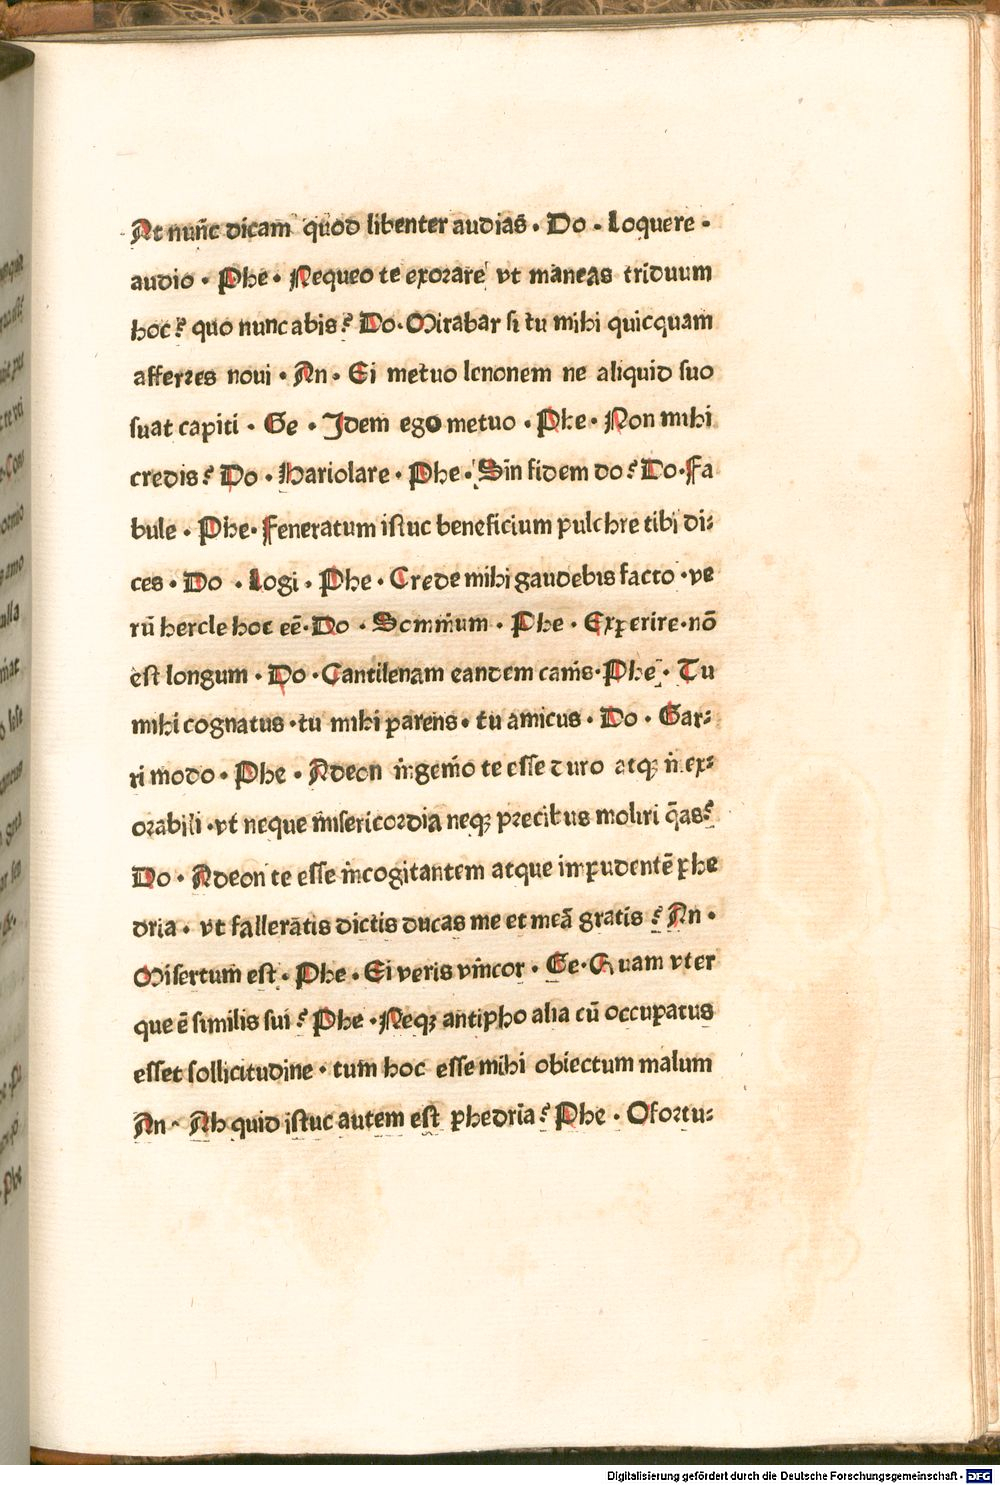 At nun̄c dicam quod libenter audias̄ · Do · Loquere ·
audio · Phe · Nequeo te exorare vt maneas triduum
hoc? quo nunc abis? Do · Mirabar si tu mihi quicquam
afferres noui · An · Ei metuo lenonem ne aliquid suo
suat capiti · Ge · Idem ego metuo · Phe · Non mihi
credis? Do · Hariolare · Phe · Sin fidem do? Do · Fa
bule · Phe · Feneratum istuc beneficium pulchre tibi di:
ces · Do · Logi · Phe · Crede mihi gaudebis facto · ve
rū hercle hoc eē · Do · Somnium · Phe · Experire · nō
est longum · Do · Cantilenam eandem canis · Phe · Tu
mihi cognatus · tu mihi parens · tu amicus · Do · Gar:
ri modo · Phe · Adeon ingenio te esse duro atqȝ inex:
orabili · vt neque misericordia neqȝ precibus moliri q̄as?
Do · Adeon te esse incogitantem atque impudentē phe
dria · vt fallerātis dictis ducas me et meā gratis? An ·
Misertum est · Phe · Ei veris vincor · Ge · Quam vter
que ē similis sui? Phe · Neqȝ antipho alia cū occupatus
esset sollicitudine · tum hoc esse mihi obiectum malum
An · Ah quid istuc autem est phedria? Phe · O fortu:
Digitalisierung gefördert durch die Deutsche Forschungsgemeinschaft - DFG